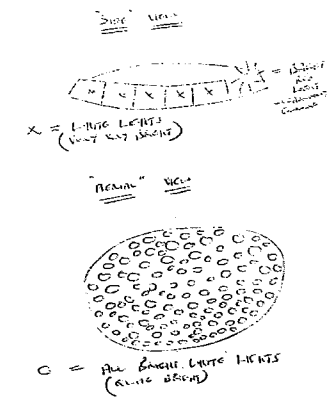 "SIDE" VIEW
X X X X X X
= BRIGHT
RED
LIGHT
X = WHITE LIGHTS
(VERY VERY BRIGHT)
"AERIAL" VIEW
O = ALL BRIGHT WHITE LIGHTS
(BRIGHT)